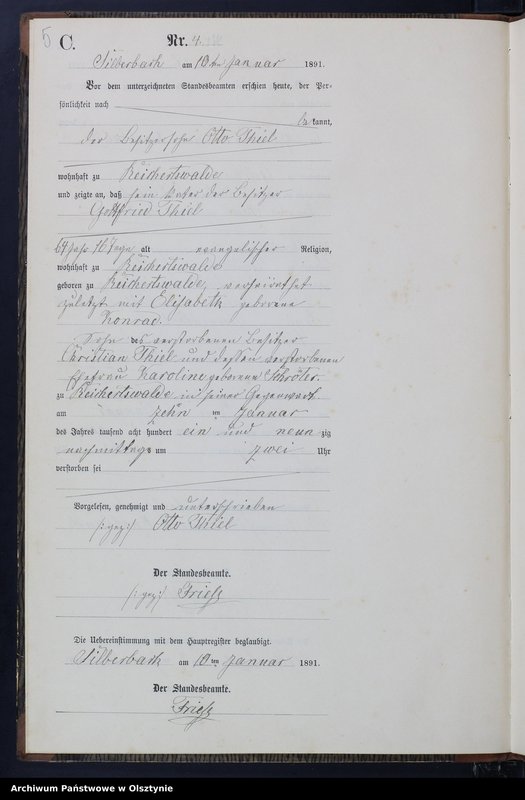 5
C.
Nr. 4.
Silberbach am 10ten Januar 1891.
Vor dem unterzeichneten Standesbeamten erschien heute, der Per-
sönlichkeit nach
bekannt,
der Besitzersohn Otto Thiel
wohnhaft zu Reichertswalde
und zeigte an, daß sein Vater der Besitzer
Gottfried Thiel
64 Jahr alt evangelischer Religion,
wohnhaft zu Reichertswalde
geboren zu Reichertswalde, verheirathet
zuletzt mit Elisabeth geborene
Konrad.
Sohn des verstorbenen Besitzer
Christian Thiel und dessen verstorbenen
Ehefrau Karoline geborene Schröter.
zu Reichertswalde in seiner Gegenwart
am zehn ten Januar
des Jahres tausend acht hundert ein und neunzig
nachmittags um zwei Uhr
verstorben sei
Vorgelesen, genehmigt und unterschrieben
/:gez:/ Otto Thiel
Der Standesbeamte.
/:gez:/ Friese
Die Uebereinstimmung mit dem Hauptregister beglaubigt.
Silberbach am 10ten Januar 1891.
Der Standesbeamte.
Friese
Archiwum Państwowe w Olsztynie